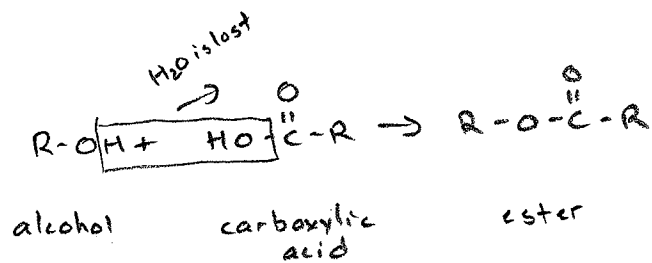 H₂O is lost
O O
R-OH + HO-C-R → R-O-C-R
alcohol carboxylic acid ester